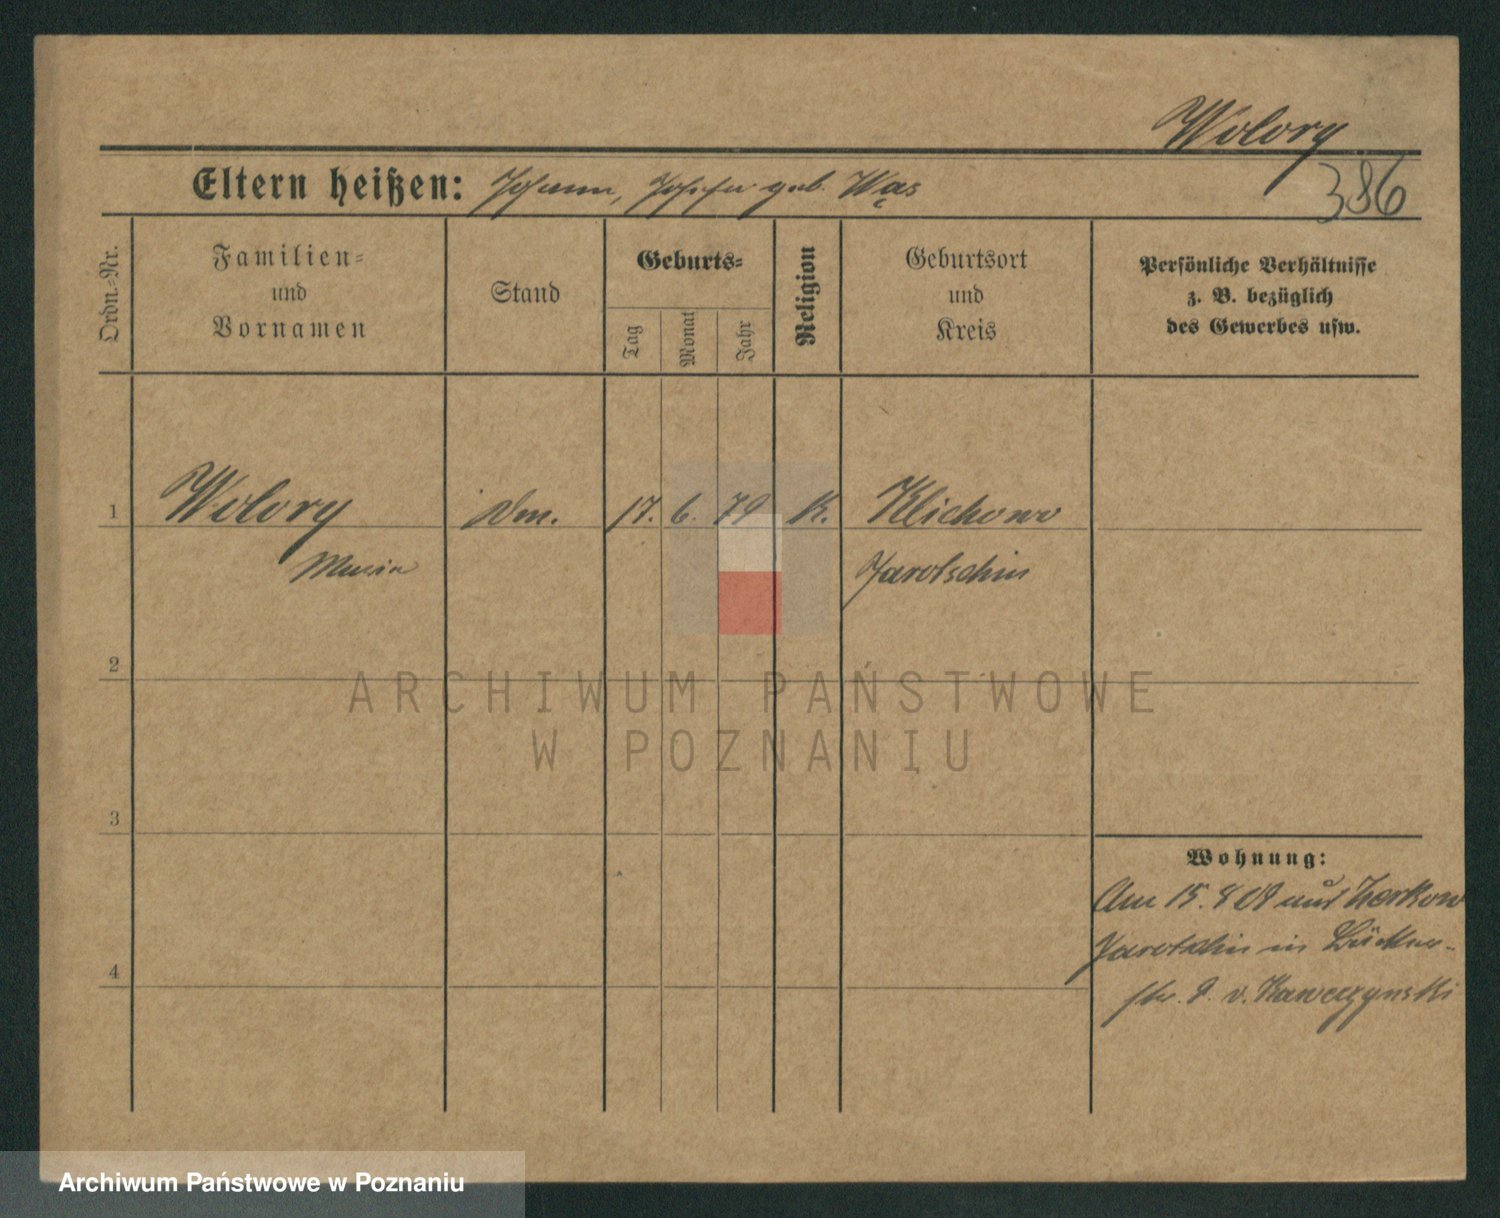 Wolory
386
Eltern heißen: Johann, Josefa geb. Wąs
Ordn.-Nr.
Familien-
und
Vornamen
Stand
Geburts-
Tag
Monat
Jahr
Religion
Geburtsort
und
Kreis
Persönliche Verhältnisse
z. B. bezüglich
des Gewerbes usw.
1 Wolory 17. 6. 79 K. Klichowo
Maria Jarotschin
2
3
4
Wohnung:
Am 15. 8 08 aus Zerkow
Jarotschin in
str. 8. v. Kawczynski
ARCHIWUM PAŃSTWOWE
W POZNANIU
Archiwum Państwowe w Poznaniu